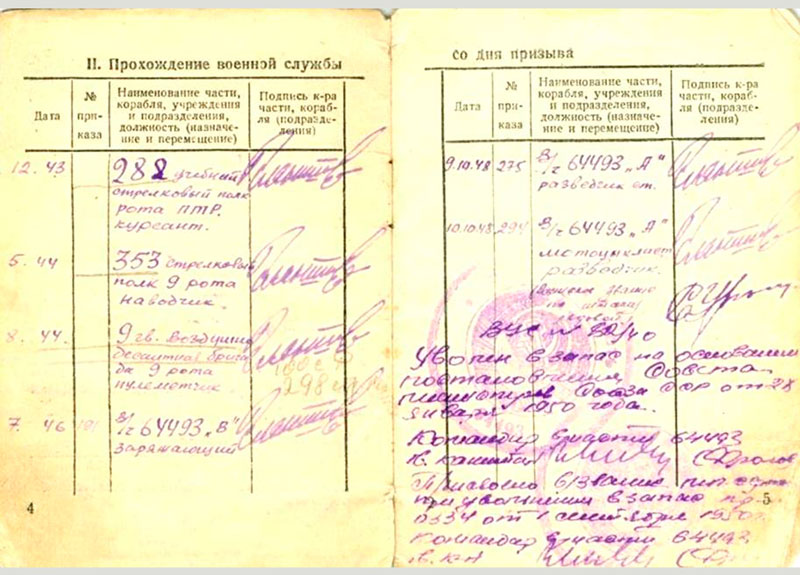 II. Прохождение военной службы
Дата
№ при-каза
Наименование части,
корабля, учреждения
и подразделения,
должность (назначе-
ние и перемещение)
Подпись к-ра
части, кораб-
ля (подразде-
ления)
12.43
282 учебный
стрелковый полк
рота ПТР.
курсант.
5.44
353 стрелковый
полк 9 рота
наводчик.
8.44.
9 гв. воздушно
десантная брига
да 9 рота
пулеметчик
298
7.46
в/ч 64493 „В"
Заряжающий
4
со дня призыва
Дата
№ при-каза
Наименование части,
корабля, учреждения
и подразделения,
должность (назначе-
ние и перемещение)
Подпись к-ра
части, кораб-
ля (подразде-
ления)
9.10.48 275 в/ч 64493 „А"
разведчик
10.10.48 294 в/ч 64493 „А"
мотоциклист
разведчик.
ВУС №
Уволен в запас на основании
постановления Совета
министров Союза ССР от 28
января 1950 года.
Командир в/части 64493
Присвоено в/звание
при увольнении в запас пр.
0334 от 1 сентября 1950г.
Командир в/части 64493
5